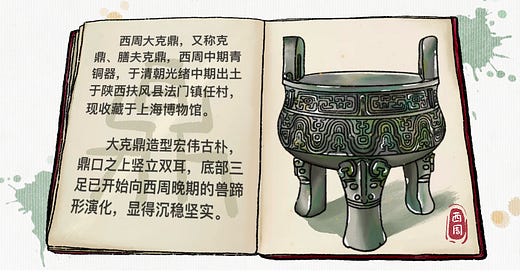 西周大克鼎，又称克
鼎、膳夫克鼎，西周中期青
铜器，于清朝光绪中期出土
于陕西扶风县法门镇任村，
现收藏于上海博物馆。
大克鼎造型宏伟古朴，
鼎口之上竖立双耳，底部三
足已开始向西周晚期的兽蹄
形演化，显得沉稳坚实。
西周